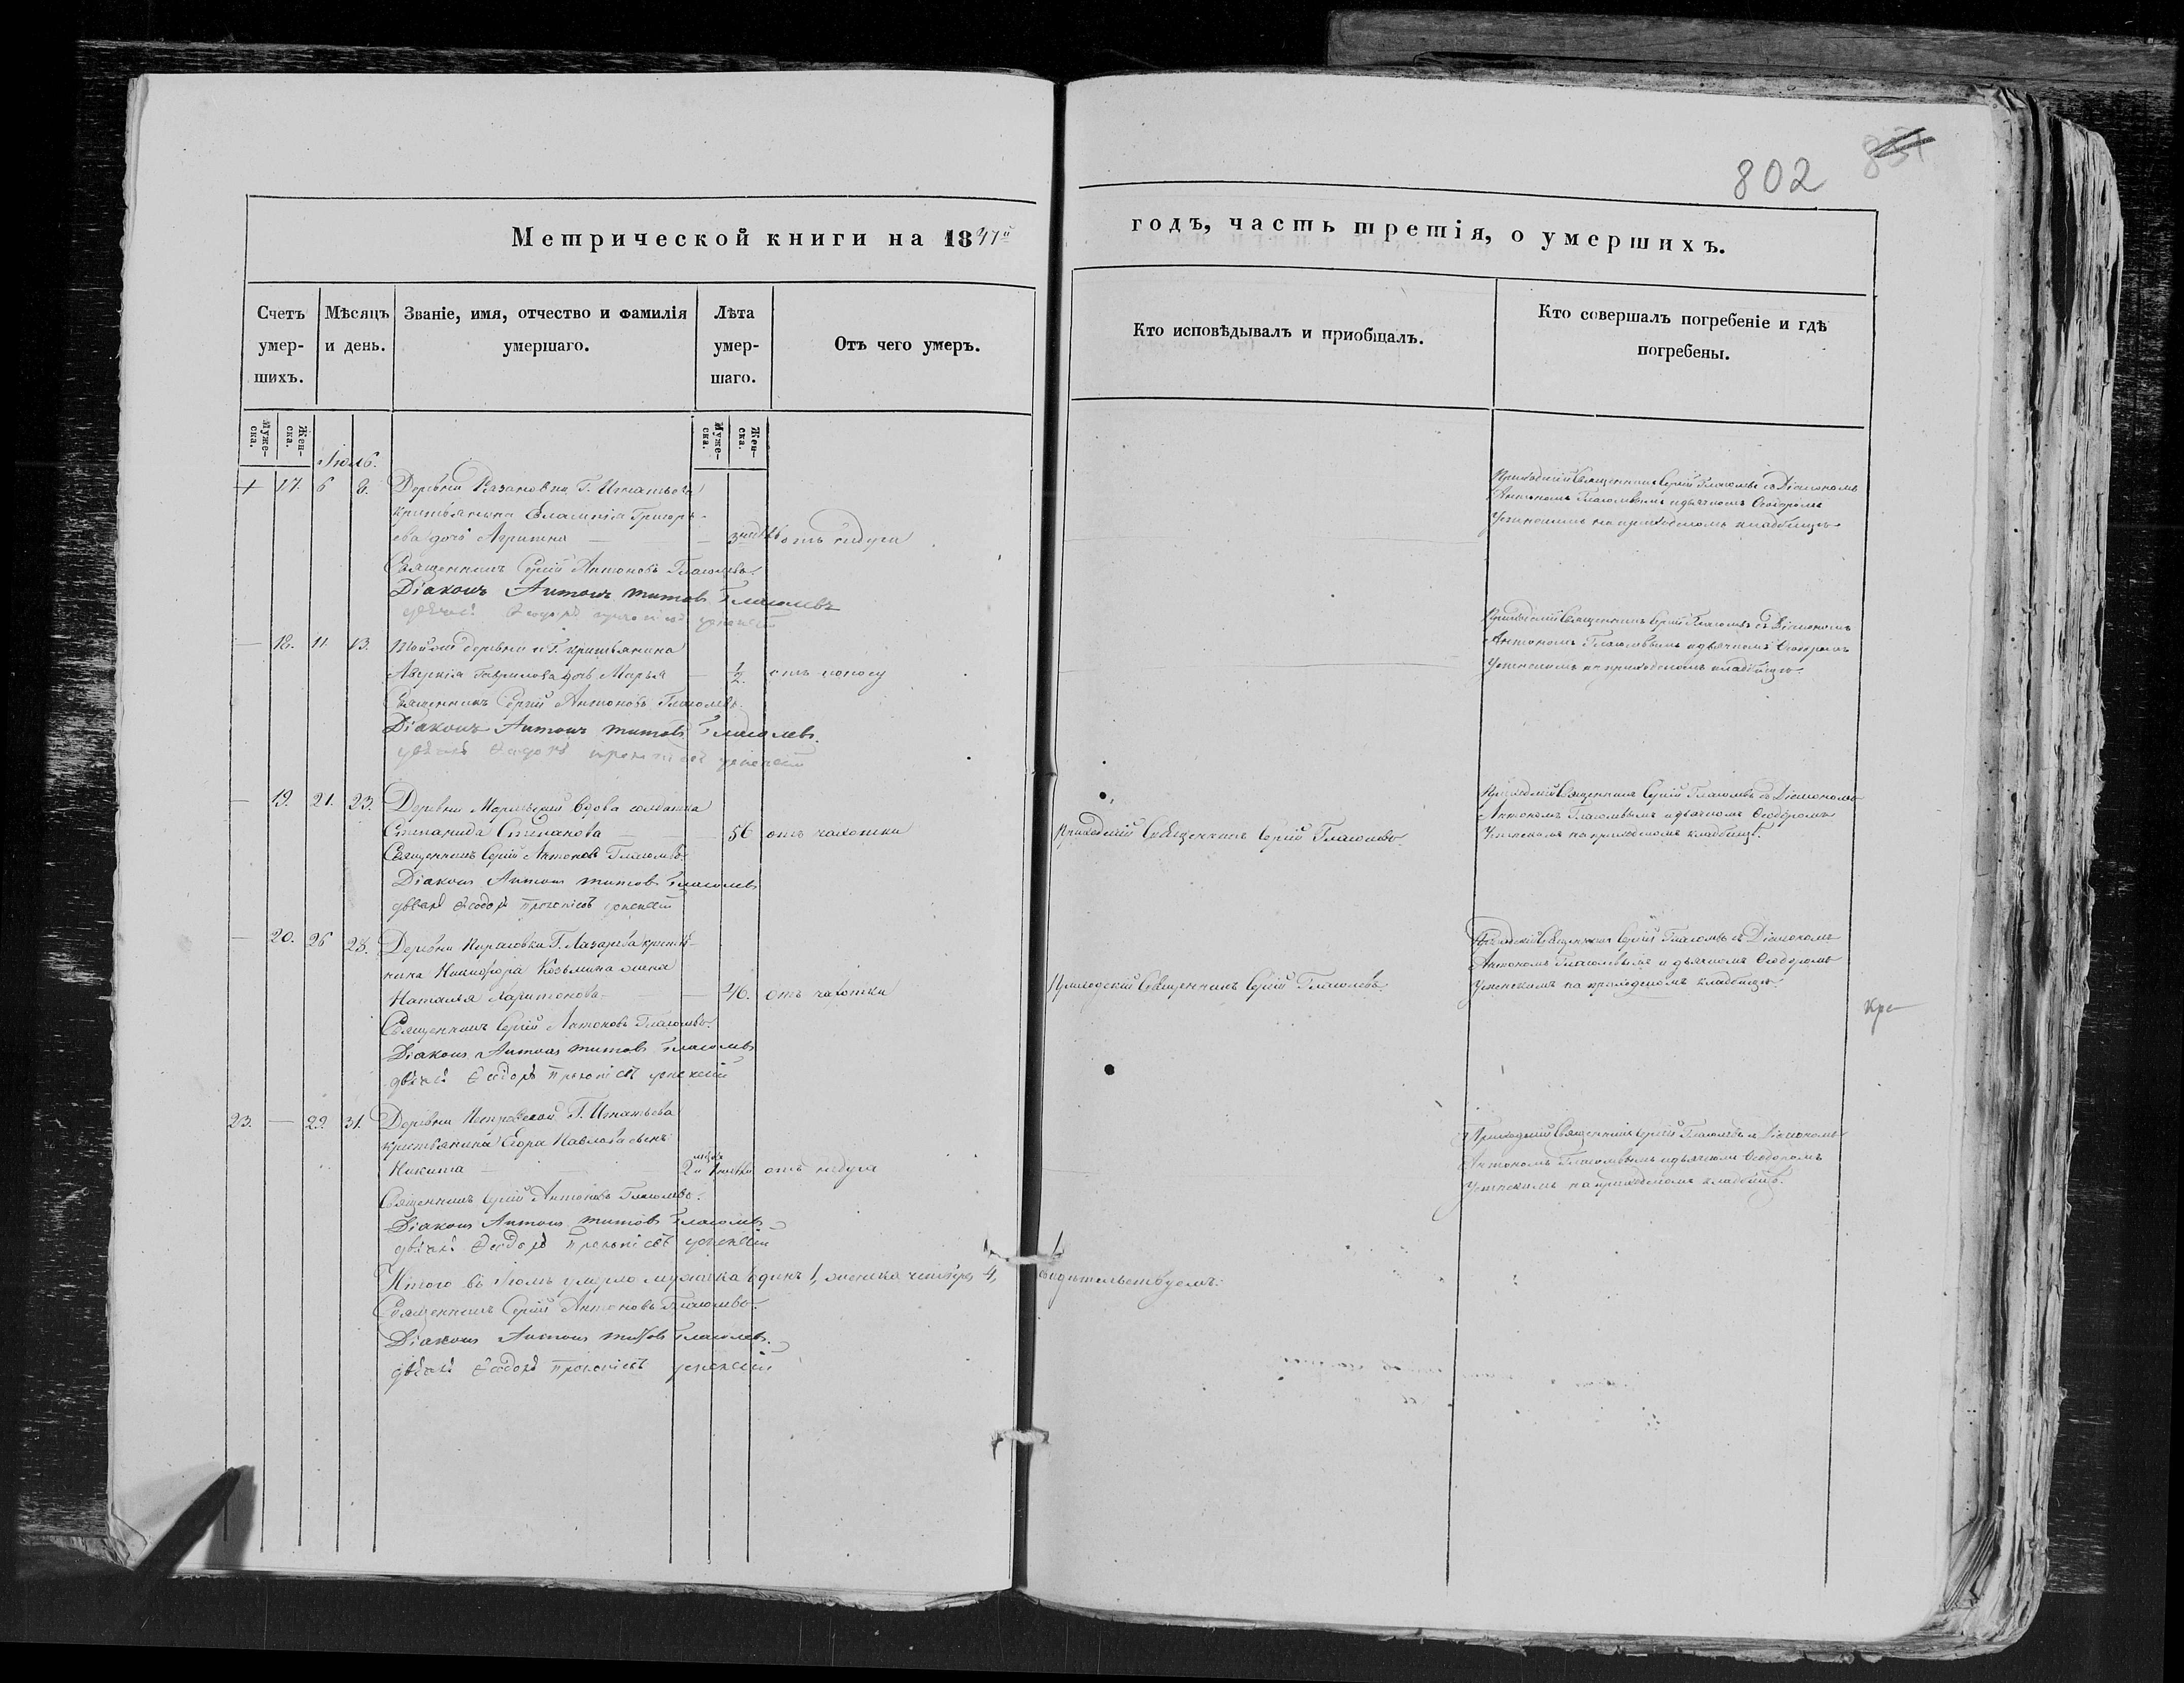 802
831
Метрической книги на 1847й
годъ, часть третія, о умершихъ.
Счетъ умер-шихъ.
Мѣсяцъ и день.
Званіе, имя, отчество и фамилія умершаго.
Лѣта умер-шаго.
Отъ чего умеръ.
Кто исповѣдывалъ и пріобщалъ.
Кто совершалъ погребеніе и гдѣ погребены.
Муже-ска.
Жен-ска.
Муже-ска.
Жен-ска.
Іюль.
17. 6 8. Деревни Казановки Г. Игнатьева
крестьянина Евлампія Григорь-
ева дочь Агрипина отъ недуга
Священникъ Сергій Антоновъ Глаголевъ.
Діаконъ Антонъ Титовъ Глаголевъ
дьячекъ Ѳеодоръ Успенскій
Приходскій Священникъ Сергій Глаголевъ съ Діакономъ
Антономъ Глаголевымъ и дьячкомъ Ѳеодоромъ
Успенскимъ на приходскомъ кладбищѣ.
— 18. 11. 13. Той же деревни и Г. крестьянина
Аверкія Гаврилова дочь Марья — 1/2. отъ поносу
Священникъ Сергій Антоновъ Глаголевъ.
Діаконъ Антонъ Титовъ Глаголевъ.
дьячекъ Ѳеодоръ Успенскій
Приходскій Священникъ Сергій Глаголевъ съ Діакономъ
Антономъ Глаголевымъ и дьячкомъ Ѳеодоромъ
Успенскимъ на приходскомъ кладбищѣ.
— 19. 21. 23. Деревни вдова солдатка
Степанида Степанова — 56 отъ чахотки
Приходскій Священникъ Сергій Глаголевъ.
Священникъ Сергій Антоновъ Глаголевъ.
Діаконъ Антонъ Титовъ Глаголевъ
дьячекъ Ѳеодоръ Успенскій
Приходскій Священникъ Сергій Глаголевъ съ Діакономъ
Антономъ Глаголевымъ и дьячкомъ Ѳеодоромъ
Успенскимъ на приходскомъ кладбищѣ.
— 20. 26 28. Деревни Г. Лазарева крестья-
нина Никифора Козьмина жена
Наталья Харитонова — 46. отъ чахотки
Приходскій Священникъ Сергій Глаголевъ.
Священникъ Сергій Антоновъ Глаголевъ.
Діаконъ Антонъ Титовъ Глаголевъ
дьячекъ Ѳеодоръ Успенскій
Приходскій Священникъ Сергій Глаголевъ съ Діакономъ
Антономъ Глаголевымъ и дьячкомъ Ѳеодоромъ
Успенскимъ на приходскомъ кладбищѣ.
кре
23. — 29. 31. Деревни Петровской Г. Игнатьева
крестьянина Егора Павлова сынъ
Никита — отъ недуга
Священникъ Сергій Антоновъ Глаголевъ.
Діаконъ Антонъ Титовъ Глаголевъ
дьячекъ Ѳеодоръ Успенскій
Приходскій Священникъ Сергій Глаголевъ съ Діакономъ
Антономъ Глаголевымъ и дьячкомъ Ѳеодоромъ
Успенскимъ на приходскомъ кладбищѣ.
Итого въ Іюлѣ умерло мужеска одинъ 1, женска четыре 4, свидѣтельствуемъ:
Священникъ Сергій Антоновъ Глаголевъ.
Діаконъ Антонъ Титовъ Глаголевъ.
дьячекъ Ѳеодоръ Успенскій